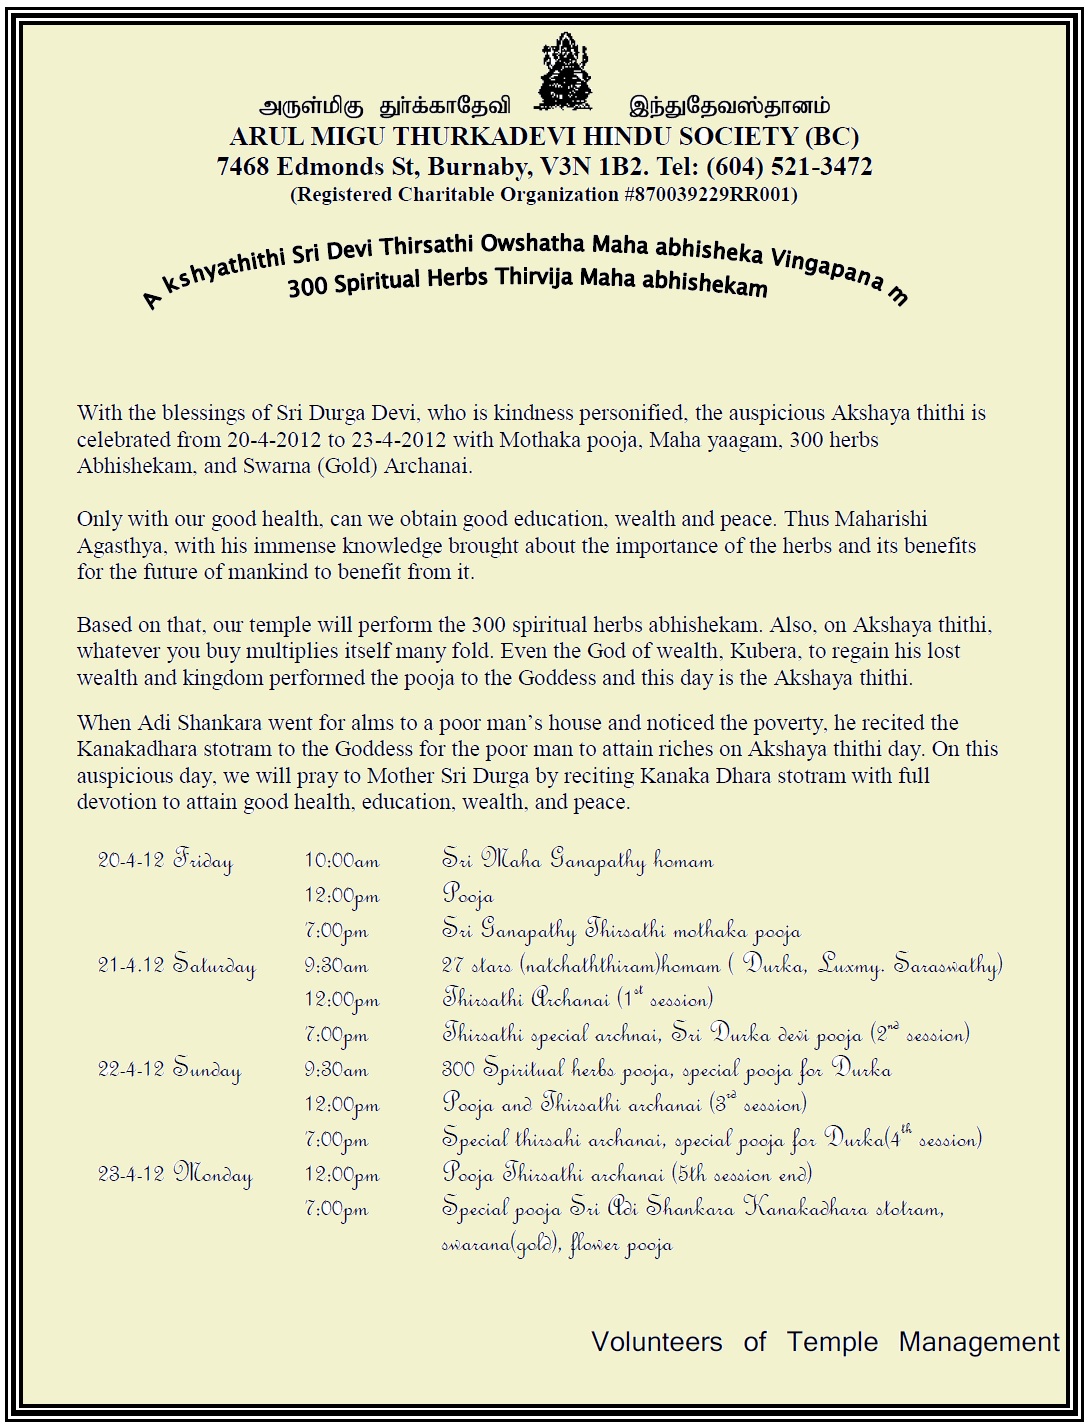 அருள்மிகு துர்க்காதேவி இந்துதேவஸ்தானம்
ARUL MIGU THURKADEVI HINDU SOCIETY (BC)
7468 Edmonds St, Burnaby, V3N 1B2. Tel: (604) 521-3472
(Registered Charitable Organization #870039229RR001)
Akshyathithi Sri Devi Thirsathi Owshatha Maha abhisheka Vingapanam
300 Spiritual Herbs Thirvija Maha abhishekam
With the blessings of Sri Durga Devi, who is kindness personified, the auspicious Akshaya thithi is
celebrated from 20-4-2012 to 23-4-2012 with Mothaka pooja, Maha yaagam, 300 herbs
Abhishekam, and Swarna (Gold) Archanai.
Only with our good health, can we obtain good education, wealth and peace. Thus Maharishi
Agasthya, with his immense knowledge brought about the importance of the herbs and its benefits
for the future of mankind to benefit from it.
Based on that, our temple will perform the 300 spiritual herbs abhishekam. Also, on Akshaya thithi,
whatever you buy multiplies itself many fold. Even the God of wealth, Kubera, to regain his lost
wealth and kingdom performed the pooja to the Goddess and this day is the Akshaya thithi.
When Adi Shankara went for alms to a poor man's house and noticed the poverty, he recited the
Kanakadhara stotram to the Goddess for the poor man to attain riches on Akshaya thithi day. On this
auspicious day, we will pray to Mother Sri Durga by reciting Kanaka Dhara stotram with full
devotion to attain good health, education, wealth, and peace.
20-4-12 Friday 10:00am Sri Maha Ganapathy homam
12:00pm Pooja
7:00pm Sri Ganapathy Thirsathi mothaka pooja
21-4.12 Saturday 9:30am 27 stars (natchaththiram)homam ( Durka, Luxmy. Saraswathy)
12:00pm Thirsathi Archanai (1st session)
7:00pm Thirsathi special archnai, Sri Durka devi pooja (2nd session)
22-4-12 Sunday 9:30am 300 Spiritual herbs pooja, special pooja for Durka
12:00pm Pooja and Thirsathi archanai (3rd session)
7:00pm Special thirsahi archanai, special pooja for Durka(4th session)
23-4-12 Monday 12:00pm Pooja Thirsathi archanai (5th session end)
7:00pm Special pooja Sri Adi Shankara Kanakadhara stotram,
swarana(gold), flower pooja
Volunteers of Temple Management